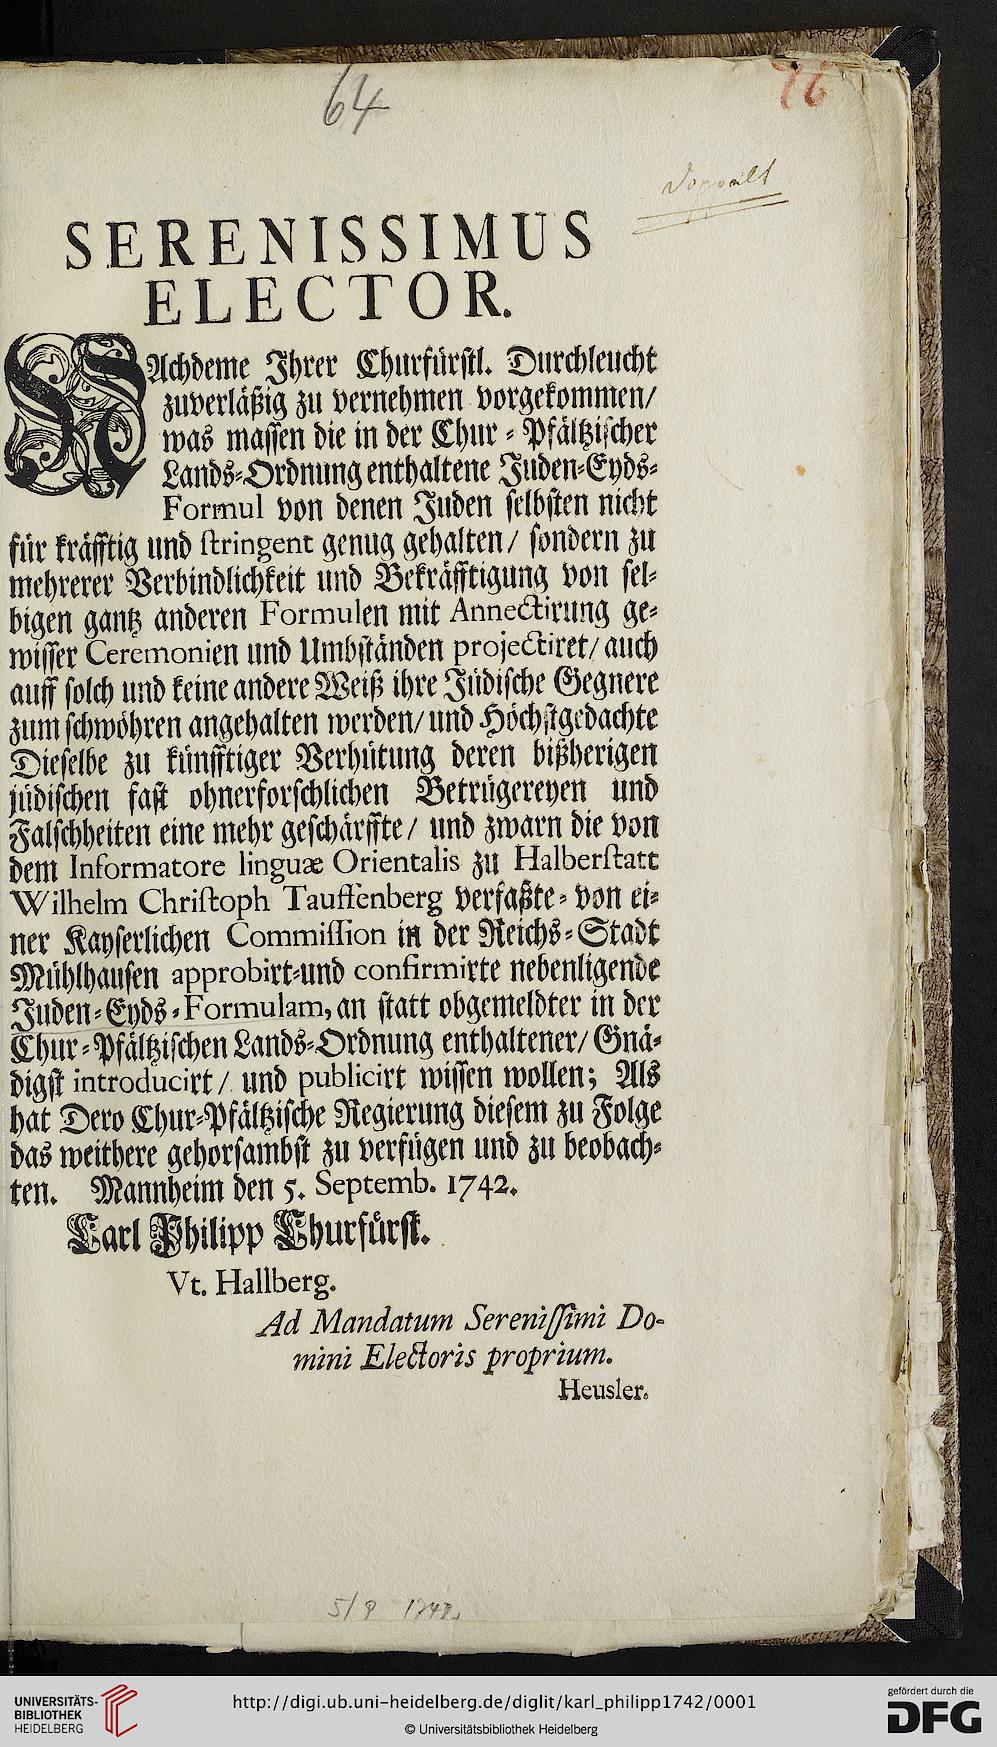 64
76
SERENISSIMUS
ELECTOR.
NAchdeme Ihrer Churfürstl. Durchleucht
zuverläßig zu vernehmen vorgekommen/
was massen die in der Chur-Pfältzischer
Lands-Ordnung enthaltene Juden-Eyds-
Formul von denen Juden selbsten nicht
für kräfftig und stringent genug gehalten/ sondern zu
mehrerer Verbindlichkeit und Bekräfftigung von sel-
bigen gantz anderen Formulen mit Annectirung ge-
wisser Ceremonien und Umbständen projectiret/ auch
auff solch und keine andere Weiß ihre Jüdische Gegnere
zum schwöhren angehalten werden/ und Höchstgedachte
Dieselbe zu künfftiger Verhütung deren bißherigen
jüdischen fast ohnerforschlichen Betrügereyen und
Falschheiten eine mehr geschärffte/ und zwarn die von
dem Informatore linguæ Orientalis zu Halberstatt
Wilhelm Christoph Tauffenberg verfaßte- von ei-
ner Kayserlichen Commission in der Reichs-Stadt
Mühlhausen approbirt-und confirmirte nebenligende
Juden-Eyds-Formulam, an statt obgemeldter in der
Chur-Pfältzischen Lands-Ordnung enthaltener/ Gnä-
digst introducirt/ und publicirt wissen wollen; Als
hat Dero Chur-Pfältzische Regierung diesem zu Folge
das weithere gehorsambst zu verfügen und zu beobach-
ten. Mannheim den 5. Septemb. 1742.
Carl Philipp Churfürst.
Vt. Hallberg.
Ad Mandatum Serenissimi Do-
mini Electoris proprium.
Heusler.
5/9 1742.
UNIVERSITÄTS-
BIBLIOTHEK
HEIDELBERG
http://digi.ub.uni-heidelberg.de/diglit/karl_philipp1742/0001
© Universitätsbibliothek Heidelberg
gefördert durch die
DFG